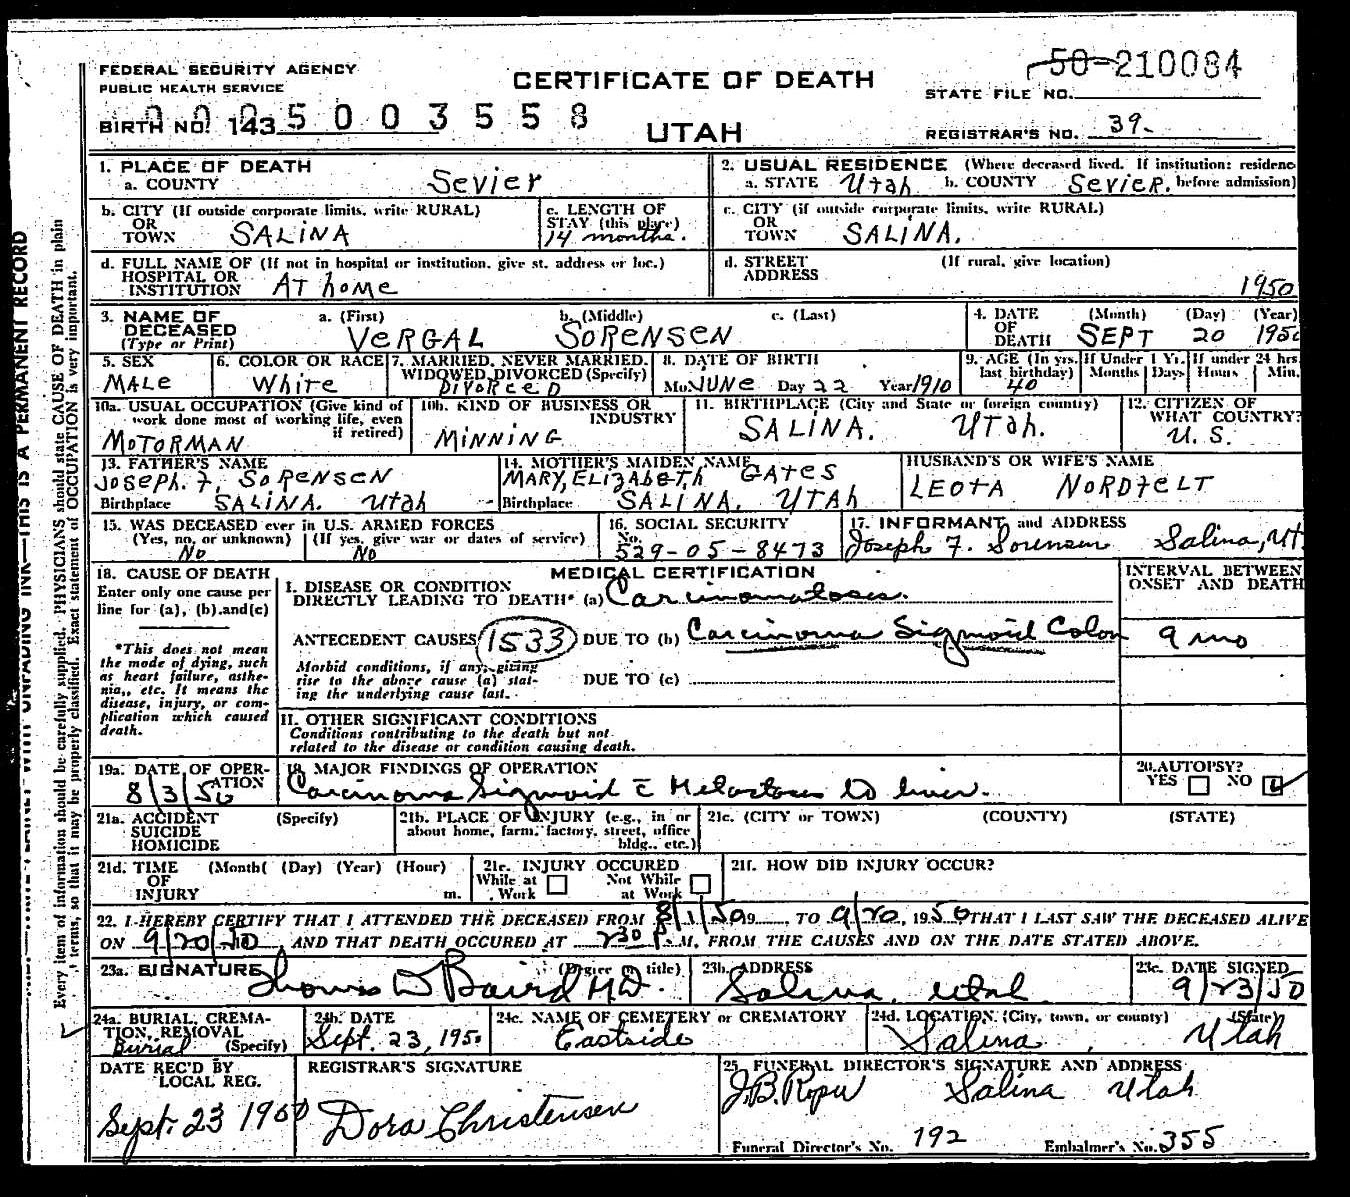 FEDERAL SECURITY AGENCY
PUBLIC HEALTH SERVICE
CERTIFICATE OF DEATH
UTAH
50-210084
STATE FILE NO.
BIRTH NO. 143
0005003558
REGISTRAR'S NO. 39-
1. PLACE OF DEATH
a. COUNTY Sevier
2. USUAL RESIDENCE (Where deceased lived. If institution: residenc
a. STATE Utah b. COUNTY SEVIER. before admission)
b. CITY (If outside corporate limits, write RURAL)
OR
TOWN SALINA
c. LENGTH OF
STAY (this place)
14 months.
c. CITY (if outside corporate limits, write RURAL)
OR
TOWN SALINA.
d. FULL NAME OF (If not in hospital or institution, give st. address or loc.)
HOSPITAL OR
INSTITUTION AT home
d. STREET (If rural, give location)
ADDRESS
1950
3. NAME OF a. (First) b. (Middle) c. (Last)
DECEASED
(Type or Print) VERGAL SORENSEN
4. DATE (Month) (Day) (Year)
OF
DEATH SEPT 20 1950
5. SEX
MALE
6. COLOR OR RACE
White
7. MARRIED, NEVER MARRIED,
WIDOWED, DIVORCED (Specify)
DIVORCED
8. DATE OF BIRTH
Mo. JUNE Day 22 Year 1910
9. AGE (In yrs.
last birthday)
40
If Under 1 Yr.
Months Days
If under 24 hrs.
Hours Min.
10a. USUAL OCCUPATION (Give kind of
work done most of working life, even
if retired)
MOTORMAN
10b. KIND OF BUSINESS OR
INDUSTRY
MINNING
11. BIRTHPLACE (City and State or foreign country)
SALINA. UTah.
12. CITIZEN OF
WHAT COUNTRY?
U. S.
13. FATHER'S NAME
Joseph. F. SORENSEN
Birthplace SALINA. Utah
14. MOTHER'S MAIDEN NAME
MARY, ELIZABETH GATES
Birthplace SALINA, UTAH
HUSBAND'S OR WIFE'S NAME
LEOTA NORDFELT
15. WAS DECEASED ever in U.S. ARMED FORCES
(Yes, no, or unknown) (If yes, give war or dates of service)
No No
16. SOCIAL SECURITY
No.
529-05-8473
17. INFORMANT and ADDRESS
Joseph F. Sorensen Salina, Ut.
18. CAUSE OF DEATH
Enter only one cause per
line for (a), (b), and (c)
*This does not mean
the mode of dying, such
as heart failure, asthe-
nia, etc. It means the
disease, injury, or com-
plication which caused
death.
MEDICAL CERTIFICATION
I. DISEASE OR CONDITION
DIRECTLY LEADING TO DEATH* (a) Carcinomatoses.
ANTECEDENT CAUSES 1533 DUE TO (b) Carcinoma Sigmoid Colon
Morbid conditions, if any, giving
rise to the above cause (a) stat-
ing the underlying cause last.
DUE TO (c)
II. OTHER SIGNIFICANT CONDITIONS
Conditions contributing to the death but not
related to the disease or condition causing death.
INTERVAL BETWEEN
ONSET AND DEATH
9 mo
19a. DATE OF OPER-
ATION
8/3/50
19. MAJOR FINDINGS OF OPERATION
Carcinoma Sigmoid c̄ Metastases to liver.
20. AUTOPSY?
YES NO
21a. ACCIDENT (Specify)
SUICIDE
HOMICIDE
21b. PLACE OF INJURY (e.g., in or
about home, farm, factory, street, office
bldg., etc.)
21c. (CITY or TOWN) (COUNTY) (STATE)
21d. TIME (Month( (Day) (Year) (Hour)
OF
INJURY m.
21e. INJURY OCCURED
While at Not While
Work at Work
21f. HOW DID INJURY OCCUR?
22. I HEREBY CERTIFY THAT I ATTENDED THE DECEASED FROM 8/1/50 19 , TO 9/20, 1950 THAT I LAST SAW THE DECEASED ALIVE
ON 9/20/50, AND THAT DEATH OCCURED AT 230 P.M, FROM THE CAUSES AND ON THE DATE STATED ABOVE.
23a. SIGNATURE (Degree or title)
Thomas D Baird M.D.
23b. ADDRESS
Salina, Utah
23c. DATE SIGNED
9/23/50
24a. BURIAL, CREMA-
TION, REMOVAL
Burial (Specify)
24b. DATE
Sept. 23, 1950
24c. NAME OF CEMETERY or CREMATORY
Eastside
24d. LOCATION (City, town, or county) (State)
Salina, Utah
DATE REC'D BY
LOCAL REG.
Sept. 23 1950
REGISTRAR'S SIGNATURE
Dora Christensen
25. FUNERAL DIRECTOR'S SIGNATURE AND ADDRESS
J.B. Salina Utah
Funeral Director's No. 192 Embalmer's No. 355
THIS IS A PERMANENT RECORD
Every item of information should be carefully supplied. PHYSICIANS should state CAUSE OF DEATH in plain
terms, so that it may be properly classified. Exact statement of OCCUPATION is very important.